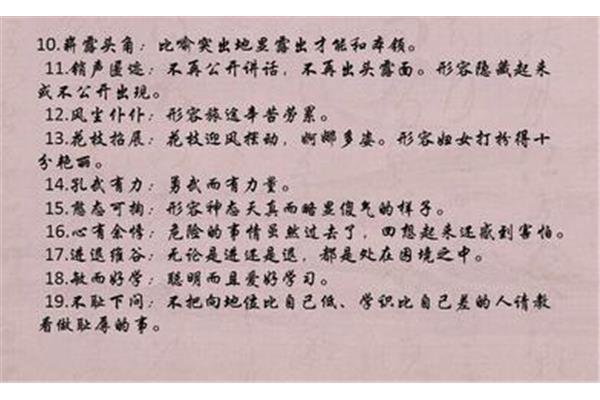 10.崭露头角：比喻突出地显露出才能和本领。
11.销声匿迹：不再公开讲话，不再出头露面。形容隐藏起来
或不公开出现。
12.风尘仆仆：形容旅途辛苦劳累。
13.花枝招展：花枝迎风摆动，婀娜多姿。形容妇女打扮得十
分艳丽。
14.孔武有力：勇武而有力量。
15.憨态可掬：形容神态天真而略显傻气的样子。
16.心有余悸：危险的事情虽然过去了，回想起来还感到害怕。
17.进退维谷：无论是进还是退，都是处在困境之中。
18.敏而好学：聪明而且爱好学习。
19.不耻下问：不把向地位比自己低、学识比自己差的人请教
看做耻辱的事。